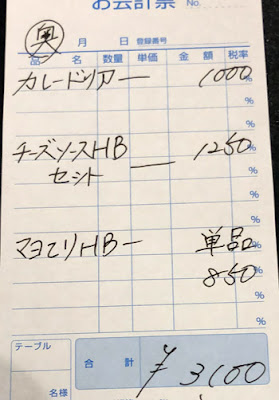 お会計票 No.
奥 月 日 登録番号
品 名 数量 単価 金 額 税率
カレードリアー 1000 %
%
チーズソースHB ー 1250 %
セット %
%
マヨてりHBー 単品 %
850 %
%
テーブル
名様
合 計 ¥3100